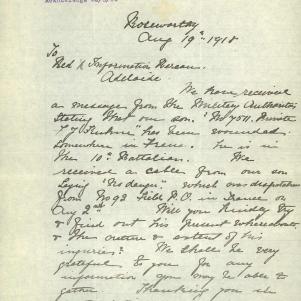 Roseworthy
Aug 19th 1918
To
Red X Information Bureau.
Adelaide
We have received
a message from the Military Authorities
stating that our son. No 7511. Private
L. has been wounded.
Somewhere in France. He is in
the 10th Battalion. We
received a cable from our son
saying "No danger". which was despatched
from No 93 Field P.O. in France on
Aug 2nd. Will you kindly try
& find out his present whereabouts
& the nature & extent of his
injuries? We shall be very
grateful to you for any
information you may be able to
gather. Thanking you in